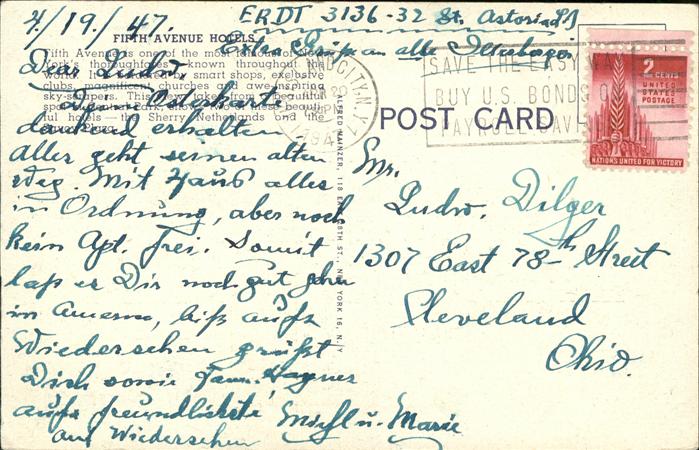 4/19./47. ERDT 3136-32 St. Astoria L I
Extra Grüße an alle
FIFTH AVENUE HOTELS
Fifth Avenue is one of the most famous of New
York's thoroughfares known throughout the
world. It is lined by smart shops, exclusive
clubs, magnificent churches and awe-inspiring
sky-scrapers. This view taken from a beautiful
spot in Central Park, shows two of the most beauti-
ful hotels — the Sherry Netherlands and the
Savoy Plaza.
Dear Ludw.
Deine Osterkarte
dankend erhalten
alles geht seinen alten
Weg. Mit Haus alles
in Ordnung, aber noch
kein Apt. frei. Somit
laß es Dir noch gut gehen
im
biß aufs
Wiedersehen grüßt
Dich sowie Fam. Wagner
aufs freundlichste
Michl u. Marie
auf Wiedersehen
ALFRED MAINZER, 118 EAST 28TH ST., NEW YORK 16, N.Y.
POST CARD
CITY, N.Y.
PM
194
SAVE THE EASY WAY
BUY U.S. BONDS
PAYROLL SAVINGS
2 CENTS
UNITED
STATES
POSTAGE
NATIONS UNITED FOR VICTORY
Mr.
Ludw. Dilger
1307 East 78-th Street
Cleveland
Ohio.